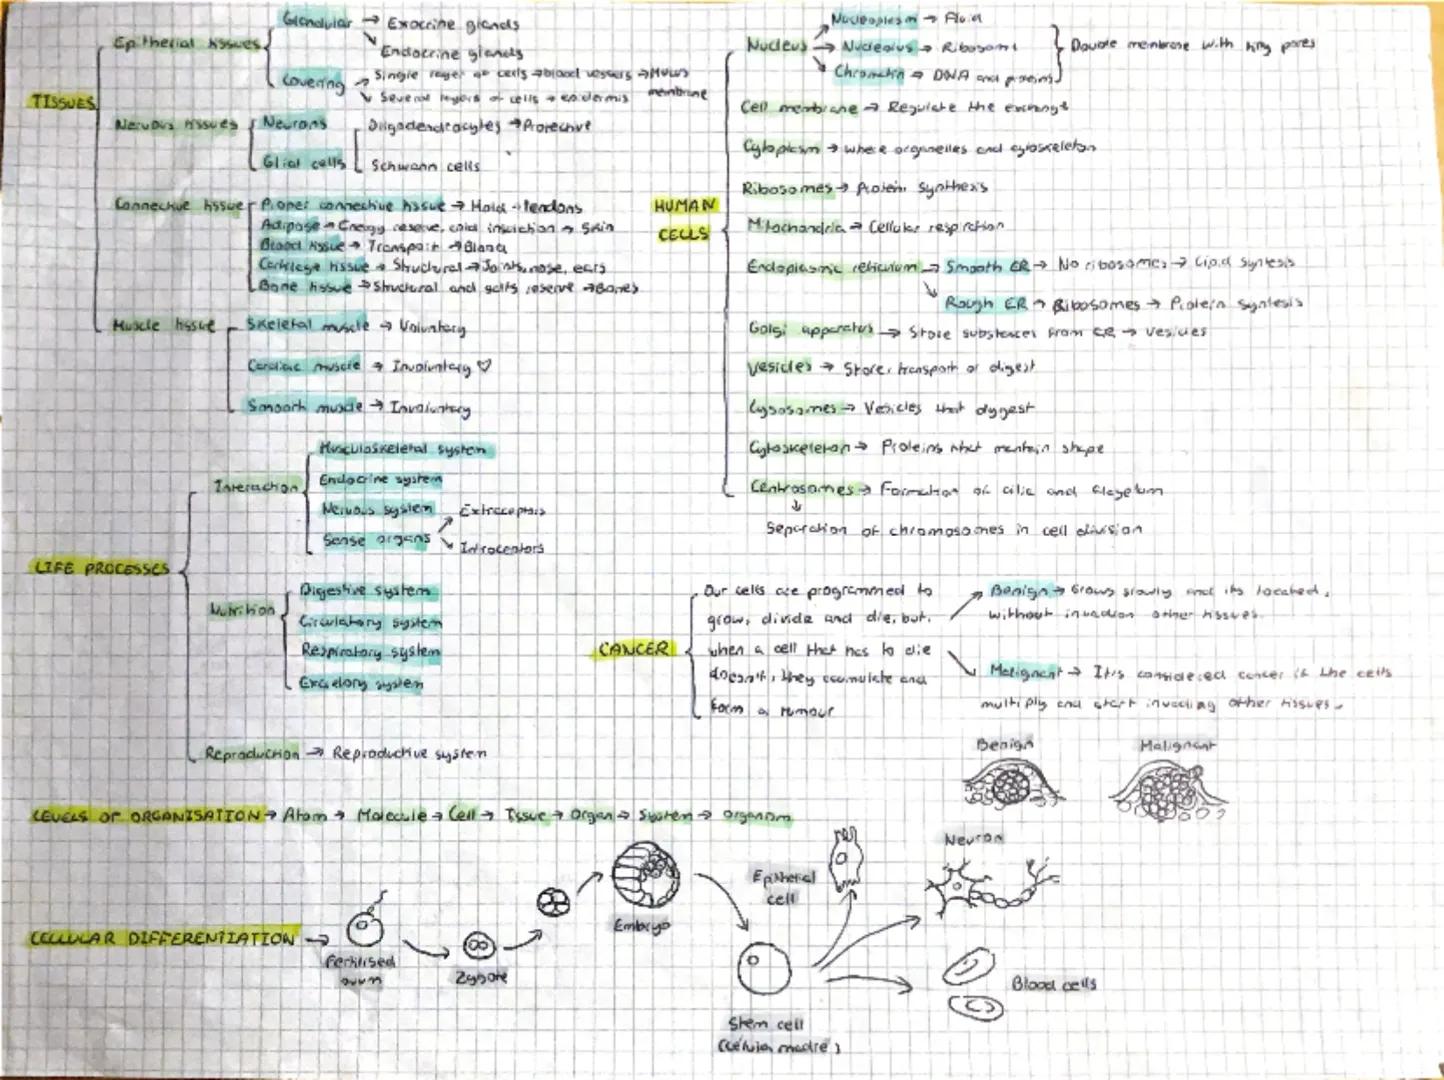 TISSUES
Epithelial tissues
Glandular → Exocrine glands
Endocrine glands
Covering → Single layer of cells → blood vessels → Mucus membrane
Several layers of cells → epidermis
Nervous tissues
Neurons
Glial cells
Oligodendrocytes → Protective
Schwann cells
Connective tissue
Proper connective tissue → Hold → tendons
Adipose → Energy reserve, cold insulation → Skin
Blood tissue → Transport → Blood
Cartilage tissue → Structural → Joints, nose, ears
Bone tissue → Structural and salts reserve → Bones
Muscle tissue
Skeletal muscle → Voluntary
Cardiac muscle → Involuntary ♡
Smooth muscle → Involuntary
HUMAN
CELLS
Nucleus → Nucleoplasm → Fluid
Nucleolus → Ribosome
Chromatin → DNA and proteins
Double membrane with tiny pores
Cell membrane → Regulate the exchange
Cytoplasm → where organelles and cytoskeleton
Ribosomes → Protein synthesis
Mitochondria → Cellular respiration
Endoplasmic reticulum → Smooth ER → No ribosomes → Lipid syntesis
Rough ER → Ribosomes → Protein syntesis
Golgi apparatus → Store substances from ER → vesicles
Vesicles → Store, transport or digest
Lysosomes → Vesicles that dygest
Cytoskeleton → Proteins that mantein shape
Centrosomes → Formation of cilia and flagelum
Separation of chromosomes in cell division
LIFE PROCESSES
Interaction
Musculoskeletal system
Endocrine system
Nervous system
Sense organs
Extraceptors
Introceptors
Nutrition
Digestive system
Circulatory system
Respiratory system
Excretory system
Reproduction → Reproductive system
CANCER
Our cells are programmed to
grow, divide and die, but,
when a cell that has to die
doesn't, they acumulate and
form a tumour
Benign → Grows slowly and its located,
without invadion other tissues.
Malignant → It is considered cancer if the cells
multiply and start invading other tissues.
Benign
Malignant
LEVELS OF ORGANISATION → Atom → Molecule → Cell → Tissue → Organ → System → Organism
CELLULAR DIFFERENTIATION →
Fertilised
ovum
Zygote
Embryo
Stem cell
(célula madre)
Epithelial
cell
Neuron
Blood cells